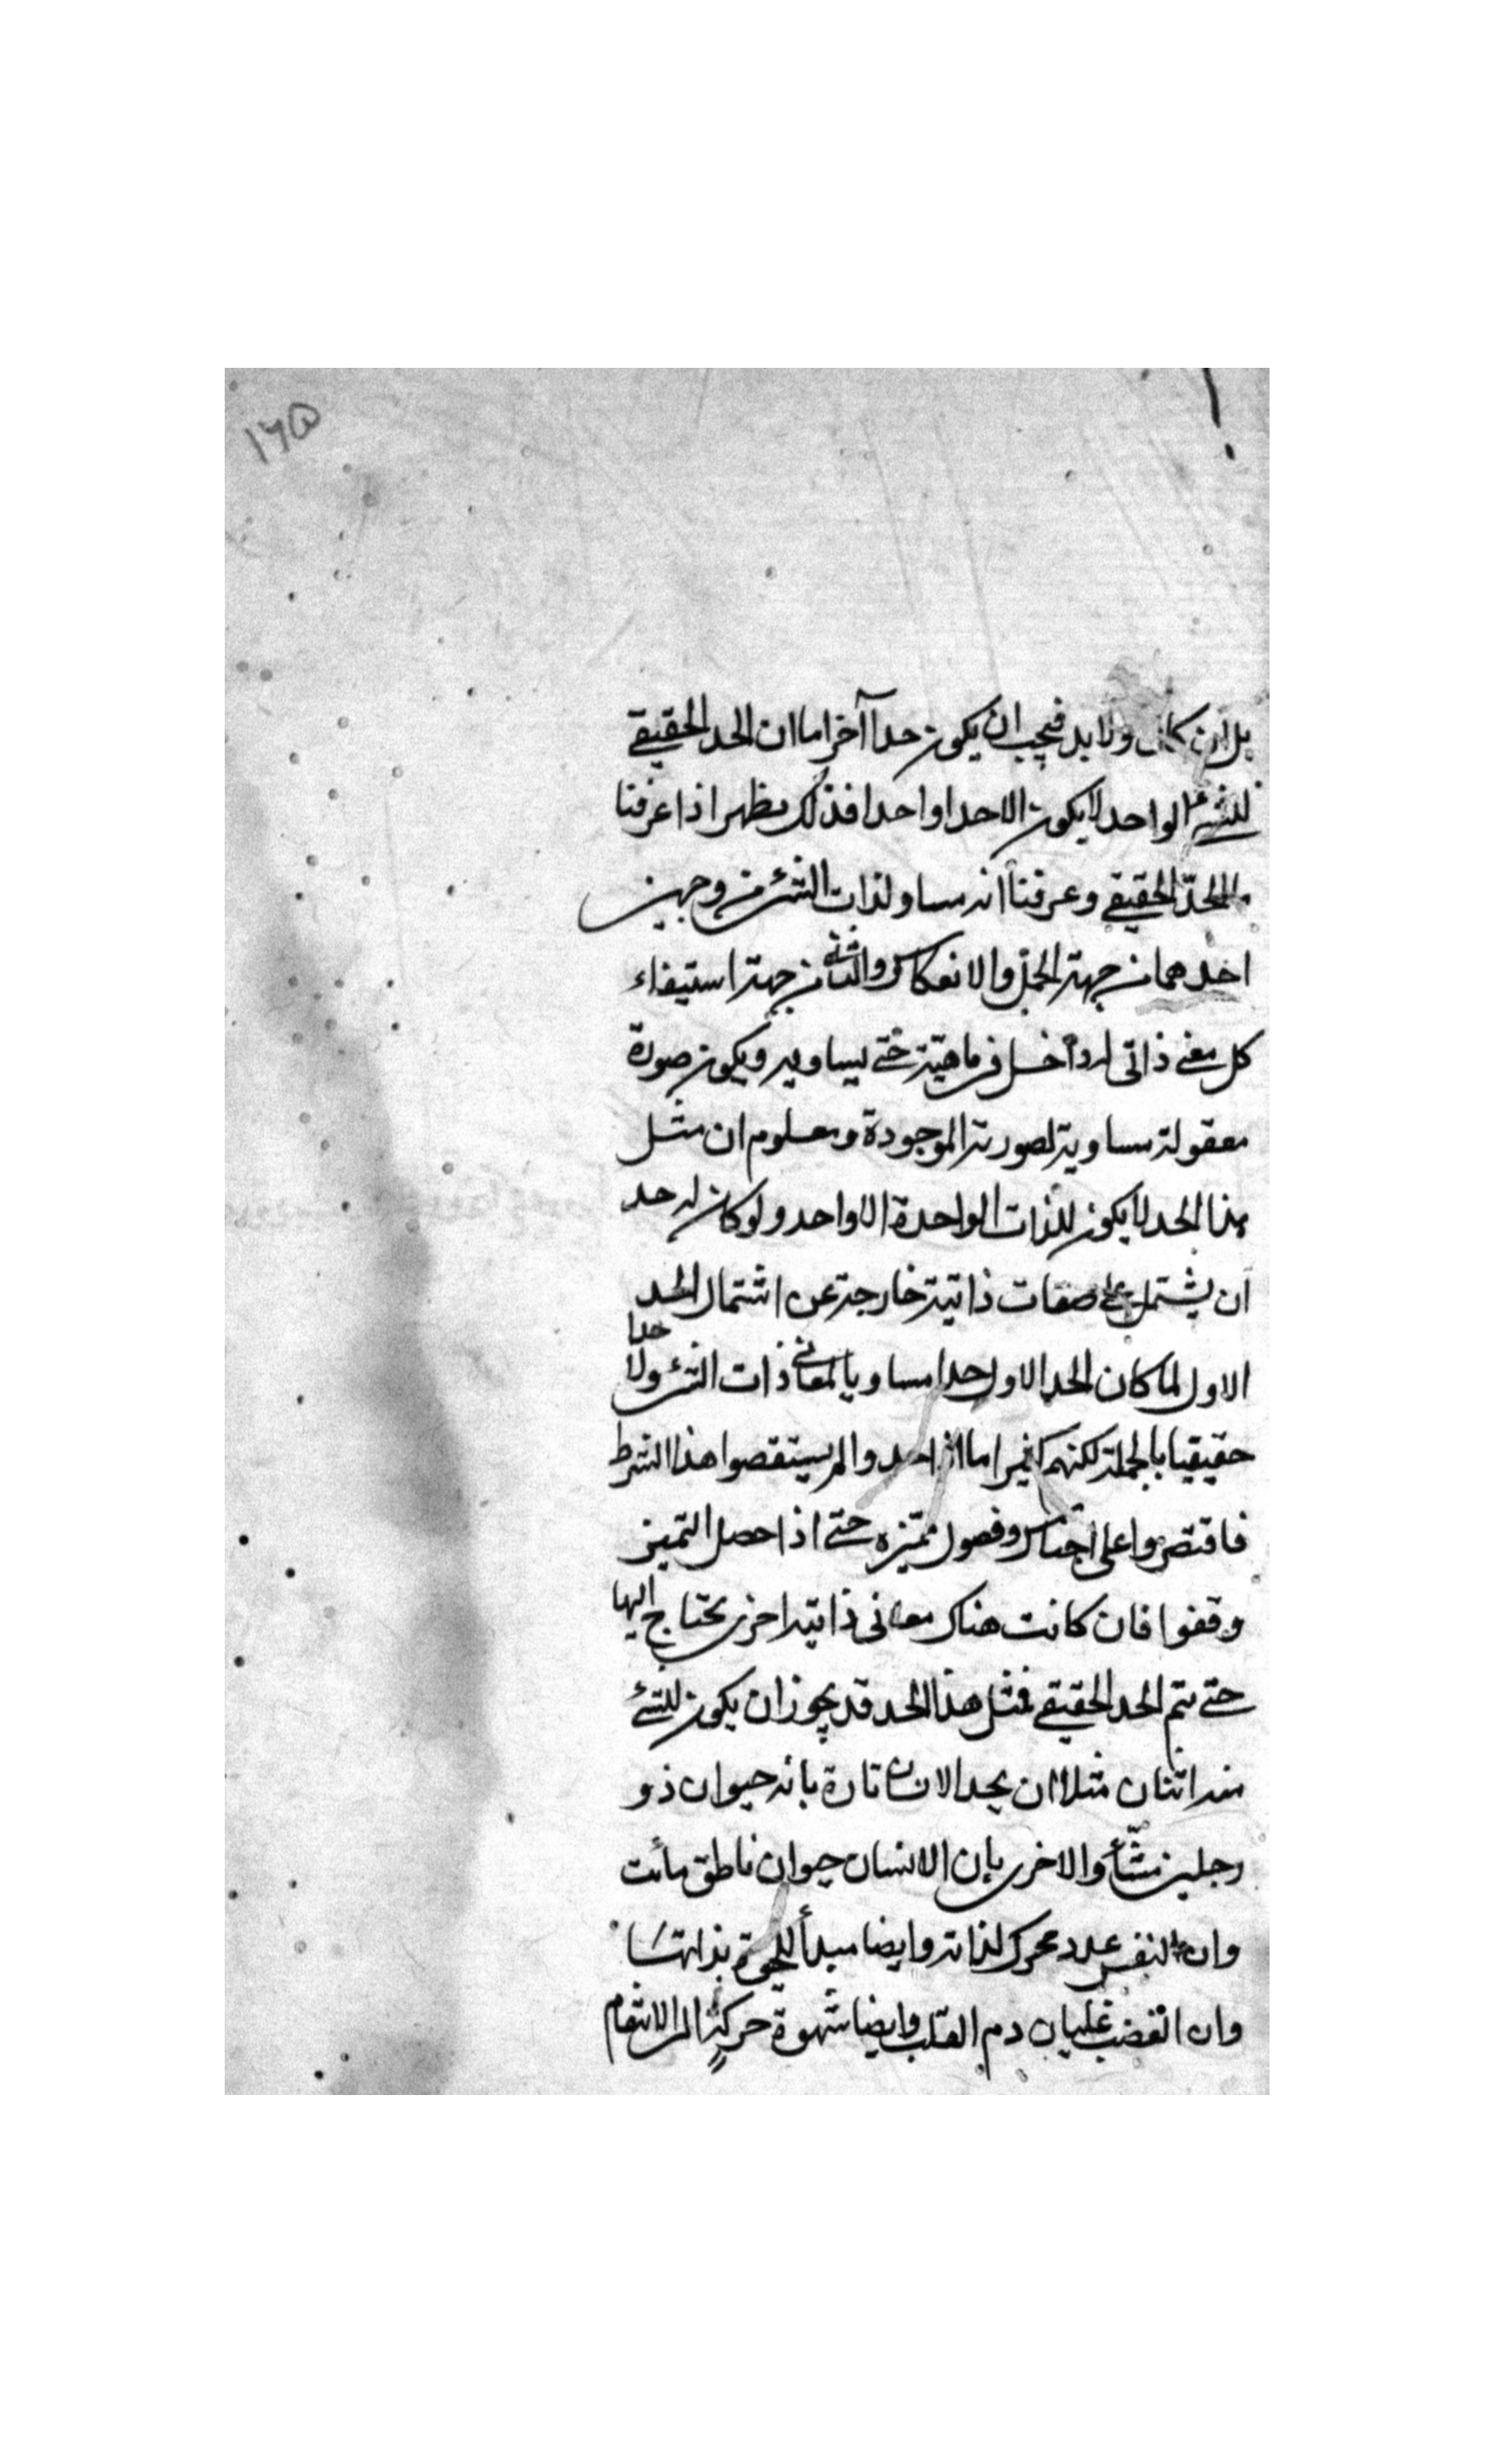 ١٦٥
بل ان كان ولا بد فيجب ان يكون حدا آخر اما ان الحد الحقيقي
للشيء الواحد لا يكون الا حدا واحدا فذلك يظهر اذا عرفنا
الحدّ الحقيقي وعرفنا انه مساو لذات الشيء من وجهين
احدهما من جهة الحمل والانعكاس والثاني من جهة استيفاء
كل معنى ذاتي له داخل في ماهيته حتى يساويه ويكون صورة
معقولة مساوية لصورته الموجودة ومعلوم ان مثل
هذا الحد لا يكون للذات الواحدة الا واحد ولو كان له حد
ان يشتمل على صفات ذاتية خارجة عن اشتمال الحد
الاول لما كان الحد الاول حدا مساويا لمعاني ذات الشيء ولا حدا
حقيقيا بالجملة لكنهم كثيرا ما اذا حدوا لم يستقصوا هذا الشرط
فاقتصروا على اجناس وفصول مميّزه حتى اذا حصل التميز
وقفوا فان كانت هناك معانى ذاتية اخرى يحتاج اليها
حتى يتم الحد الحقيقي فمثل هذا الحد قد يجوز ان يكون للشئ
منه اثنان مثلا ان يحد الانسان تارة بانه حيوان ذو
رجلين مشّاء والاخرى بان الانسان حيوان ناطق مائت
وان النفس عدد محرك لذاته وايضا مبدأ للحيوة بذاتها
وان الغضب غليان دم القلب وايضا شهوة حركة الى الانتقام